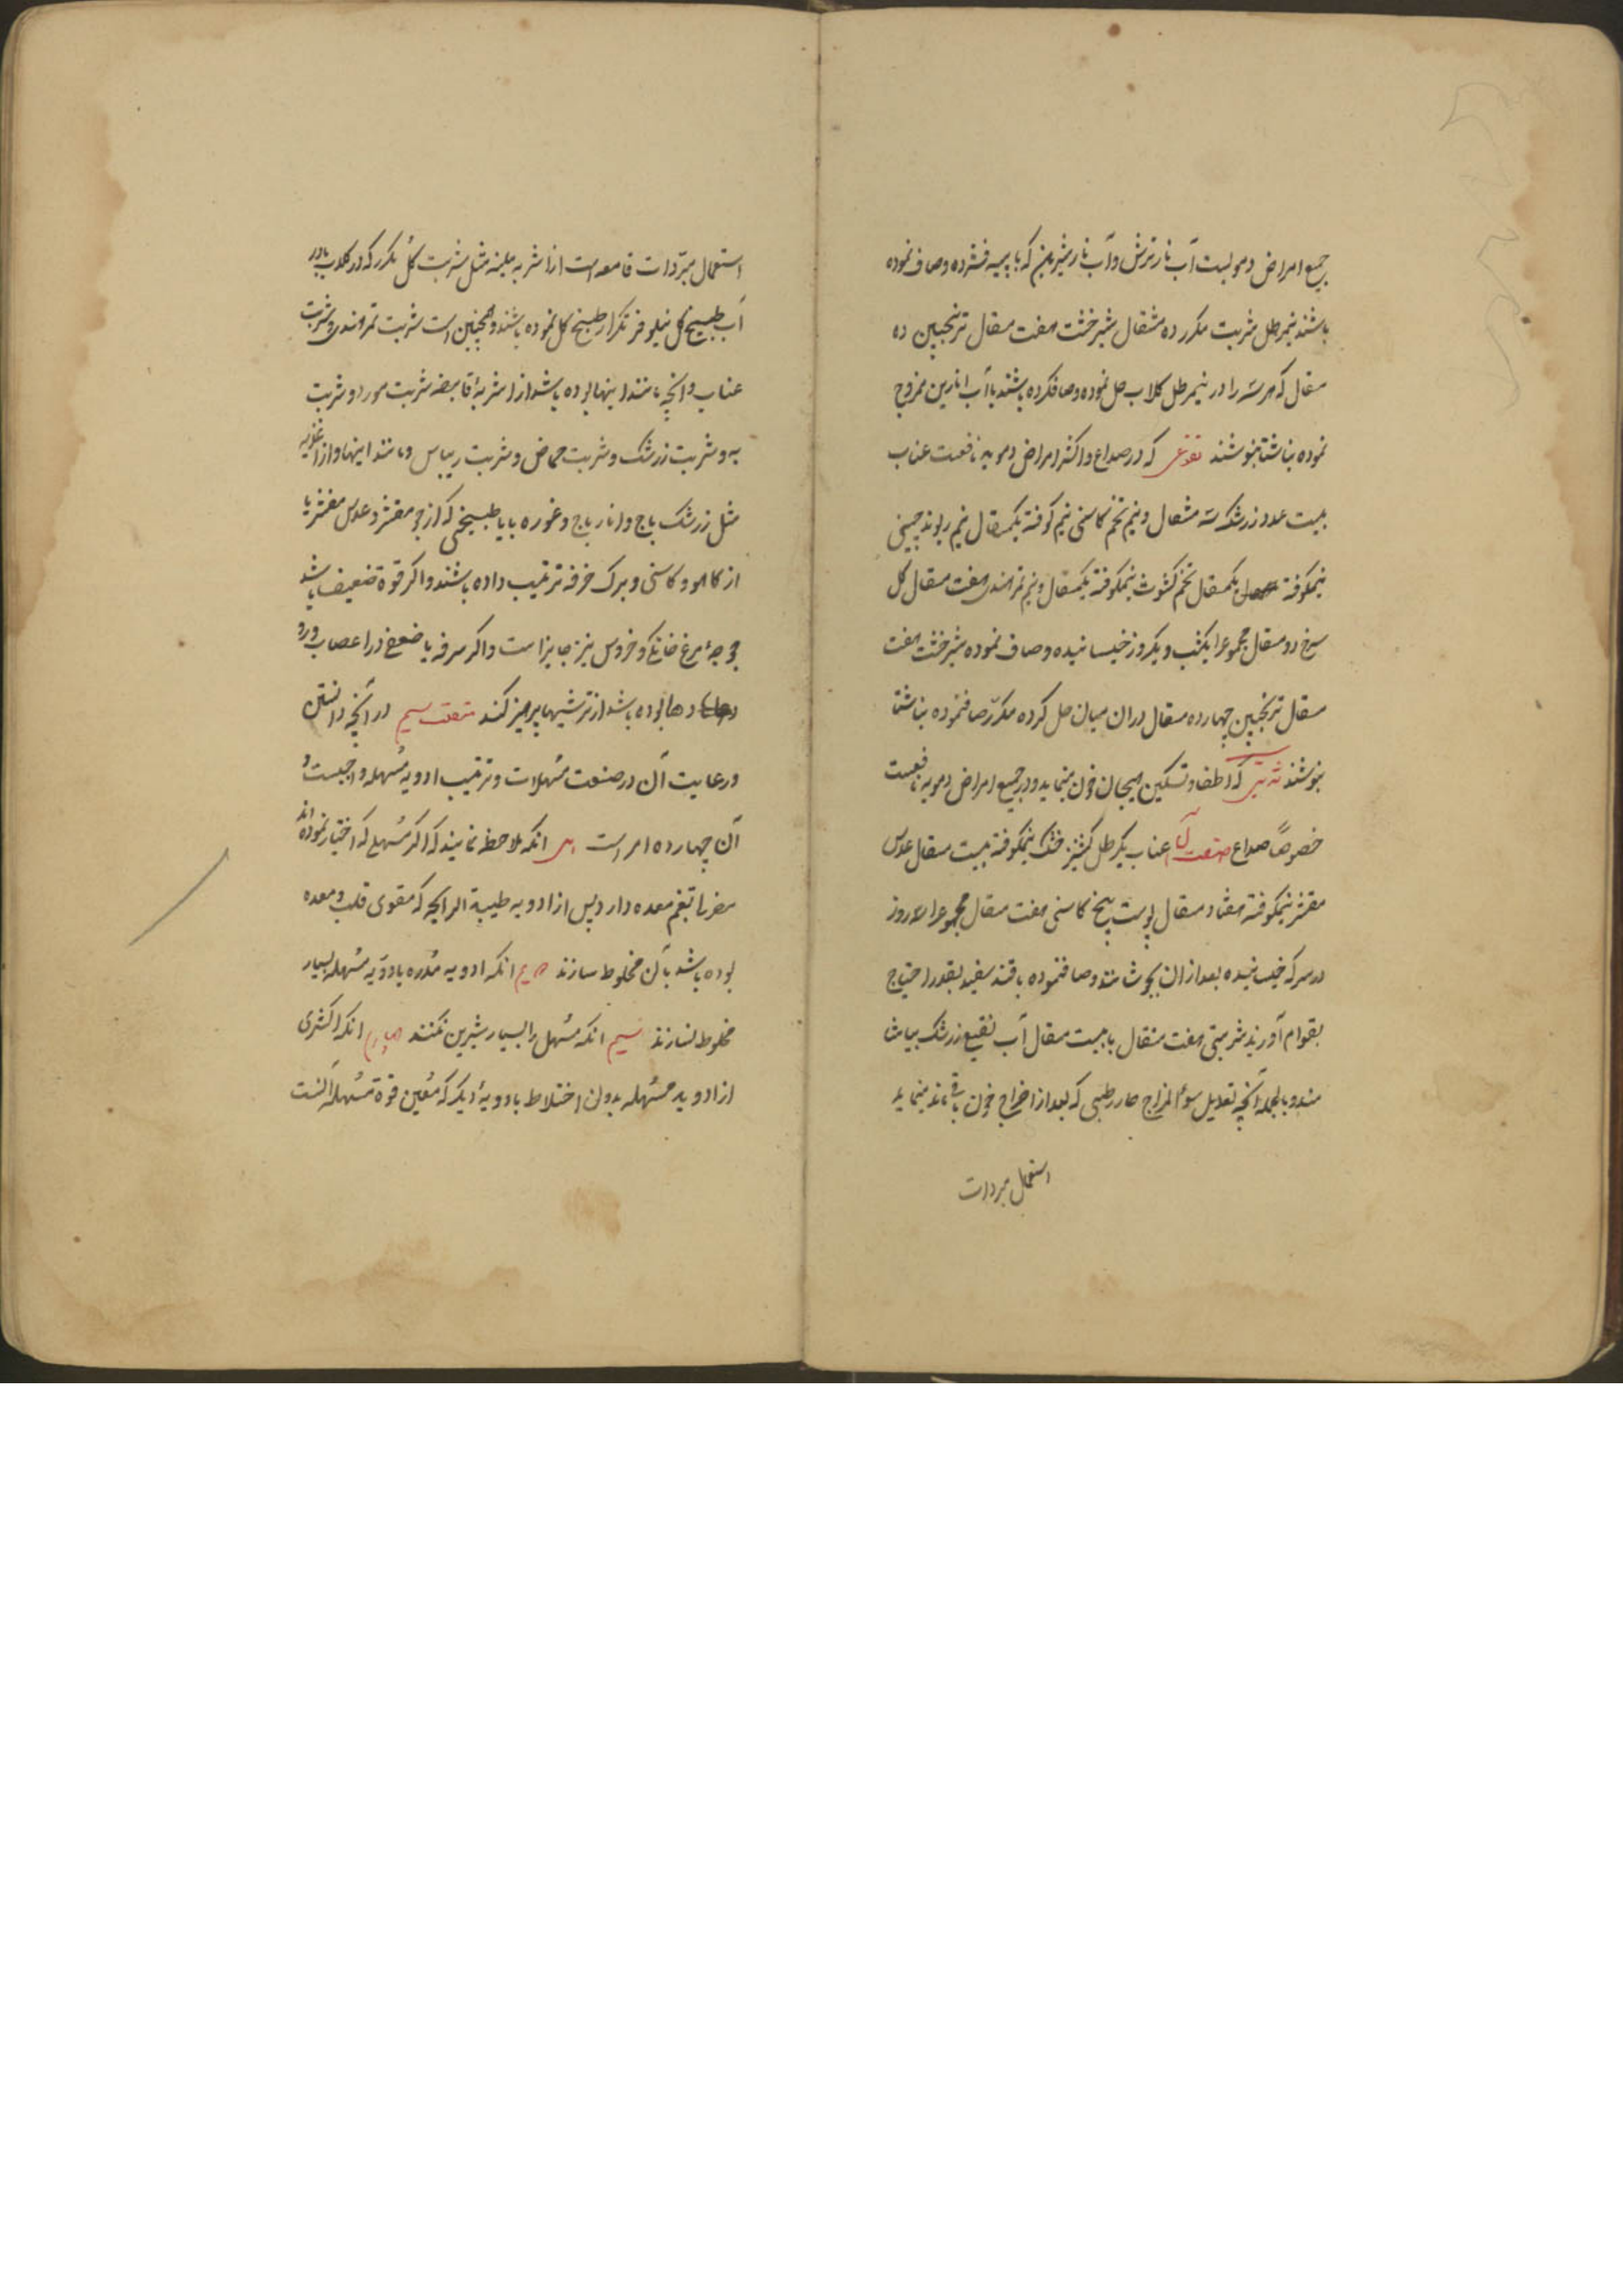 جمیع امراض دمویست آب نار ترش و آب نار شیرین که با پیه فشرده و صاف نموده
باشند نیم رطل شربت مکرر ده مثقال شیرخشت هفت مثقال ترنجبین ده
مثقال که هر سه را در نیم رطل کلاب حل نموده و صاف کرده باشند با آب انارین ممزوج
نموده بناشتا بنوشند نقوعی که در صداع و اکثر امراض دمویه نافعست عناب
بیست عدد زرشک سه مثقال و نیم تخم کاسنی نیم کوفته یکمثقال نیم ریوند چینی
نیمکوفته یکمثقال تخم کشوث نیمکوفته یکمثقال و نیم تمر هندی هفت مثقال کل
سرخ دو مثقال مجموع را یکشب و یکروز خیسانیده و صاف نموده شیرخشت هفت
مثقال ترنجبین چهارده مثقال دران میان حل کرده مکرر صاف نموده بناشتا
بنوشند شربتی که اطفا و تسکین هیجان خون مینماید و در جمیع امراض دمویه نافعست
خصوصاً صداع صنعت آن عناب یکرطل کشنیز خشک نیمکوفته بیست مثقال عدس
مقشر نیمکوفته هفتاد مثقال پوست بیخ کاسنی هفت مثقال مجموع را سه روز
در سرکه خیسانیده بعد از ان بجوشانند و صاف نموده با قند سفید بقدر احتیاج
بقوام آورند شربتی هفت مثقال با بیست مثقال آب نقیع زرشک بیاشا
مند و بالجمله آنچه تعدیل سوء المزاج حار رطبی که بعد از اخراج خون باقی ماند مینماید
استعمال مبردات
استعمال مبرّدات قامعه است از اشربه ملینه مثل شربت کل مکرر که در کلاب یا در
آب طبیخ کل نیلوفر تکرار طبخ کل نموده باشند و همچنین است شربت تمر هندی و شربت
عناب و آنچه مانند اینها بوده باشد از اشربهٔ قابضه شربت مورد و شربت
به و شربت زرشک و شربت حماض و شربت ریباس و مانند اینها و از اغذیه
مثل زرشک باج و انار باج و غوره با یا طبیخی که از جو مقشر و عدس مقشر یا
از کاهو و کاسنی و برک خرفه ترتیب داده باشند و اکر قوة ضعیف باشد
جوجهٔ مرغ خانکی و خروس نیز جایز است و اکر سرفه یا ضعف در اعصاب و رو
دها بوده باشد از ترشیها پرهیز کنند منفعت سیم در آنچه دانستن
و رعایت آن در صنعت مسهلات و ترتیب ادویه مسهله واجبست و
آن چهارده امر است انکه ملاحظه نمایند که اکر مسهلی که اختیار نموده اند
مضرتی بفم معده دارد پس از ادویه طیبة الرایحه که مقوی قلب و معده
بوده باشد با آن مخلوط سازند انکه ادویه مدره با ادویه مسهله بسیار
مخلوط نسازند سیم انکه مسهل را بسیار شیرین نکنند چهارم انکه اکثری
از ادویه مسهله بدون اختلاط بادویهٔ دیکر که معین قوة مسهله آنست